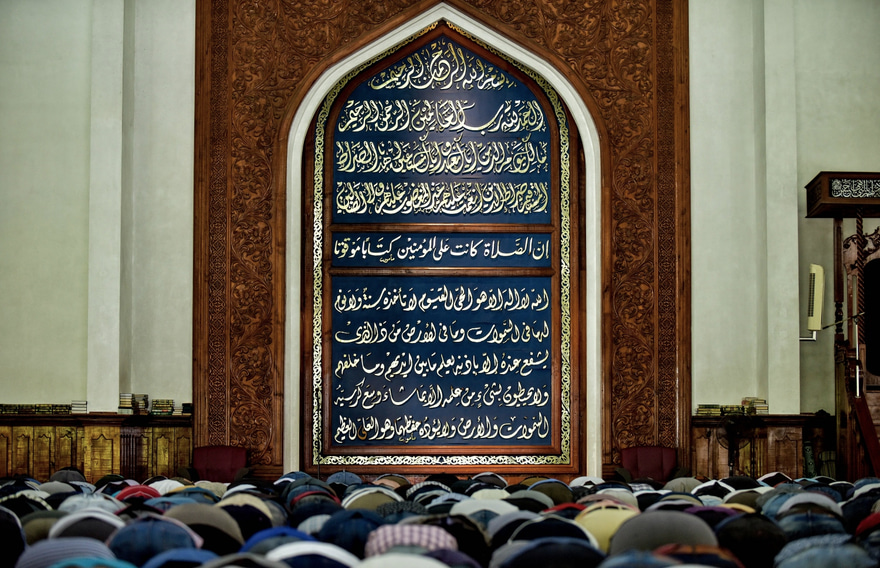 بسم الله الرحمن الرحيم
الحمد لله رب العالمين الرحمن الرحيم
مالك يوم الدين إياك نعبد وإياك نستعين اهدنا الصراط
المستقيم صراط الذين أنعمت عليهم غير المغضوب عليهم ولا الضالين
إن الصلاة كانت على المؤمنين كتابا موقوتا
الله لا اله الا هو الحي القيوم لا تأخذه سنة ولا نوم
له ما في السموات وما في الأرض من ذا الذي
يشفع عنده الا باذنه يعلم ما بين ايديهم وما خلفهم
ولا يحيطون بشيء من علمه الا بما شاء وسع كرسيه
السموات والأرض ولا يؤده حفظهما وهو العلي العظيم